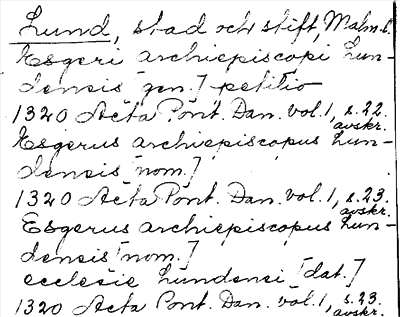 Lund, stad och stift, Malm. l.
Esgeri archiepiscopi Lun-
densis [gen.] petitio
1320 Acta Pont. Dan. vol. 1, s. 22.
avskr.
Esgerus archiepiscopus Lun-
densis [nom.]
1320 Acta Pont. Dan. vol. 1, s. 23.
avskr.
Esgerus archiepiscopus Lun-
densis [nom.]
ecclesie Lundensi [dat.]
1320 Acta Pont. Dan. vol. 1, s. 23.
avskr.